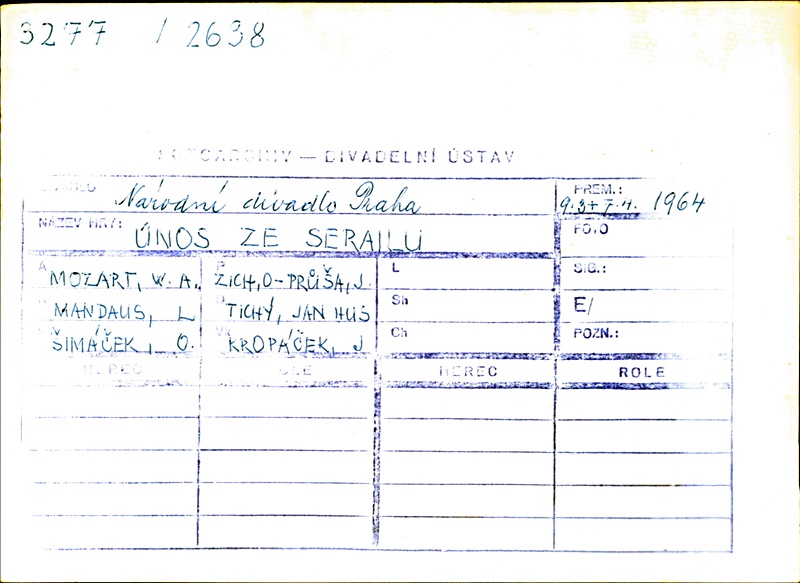 3277 / 2638
FOTOARCHIV — DIVADELNÍ ÚSTAV
DIVADLO Národní divadlo Praha PREM.: 9.3+7.4. 1964
NÁZEV HRY: ÚNOS ZE SERAILU FOTO
A MOZART, W. A. P ZICH, O-PRŮŠA, J. L SIG.:
MANDAUS, L TICHÝ, JAN HUS Sh E/
ŠIMÁČEK, O. KROPÁČEK, J Ch POZN.:
HEREC ROLE HEREC ROLE